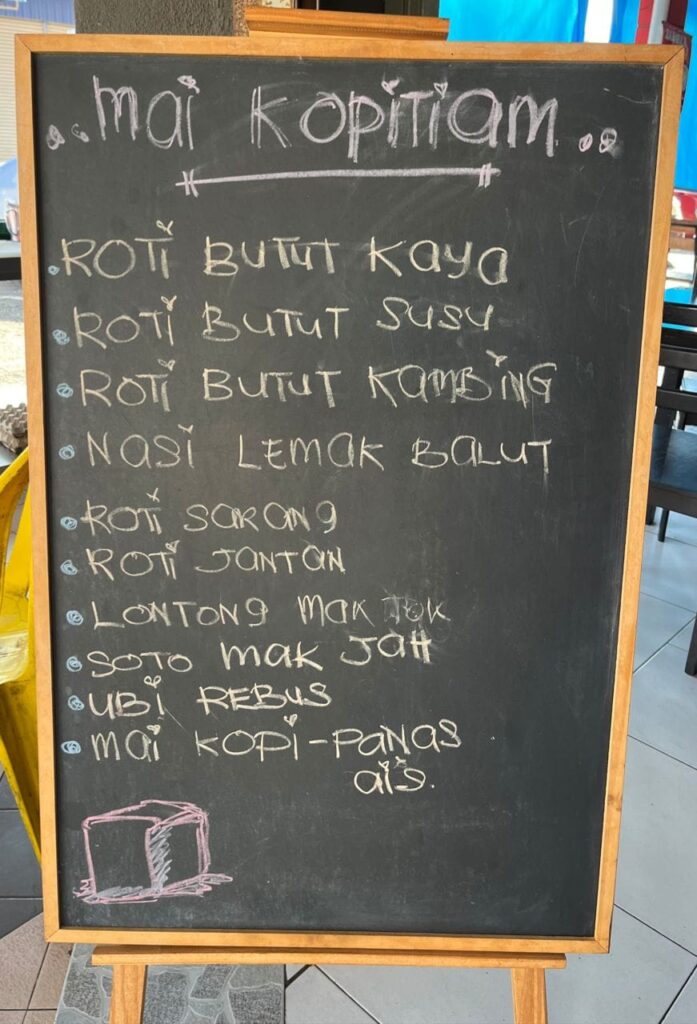 ..mai KOPITIAM..
ROTI BUTUT KAYA
ROTI BUTUT SUSU
ROTI BUTUT KAMBING
NASI LEMAK BALUT
ROTI SARANG
ROTI JANTAN
LONTONG MAK TOK
SOTO MAK JAH
UBI REBUS
MAI KOPI-PANAS
AIS.